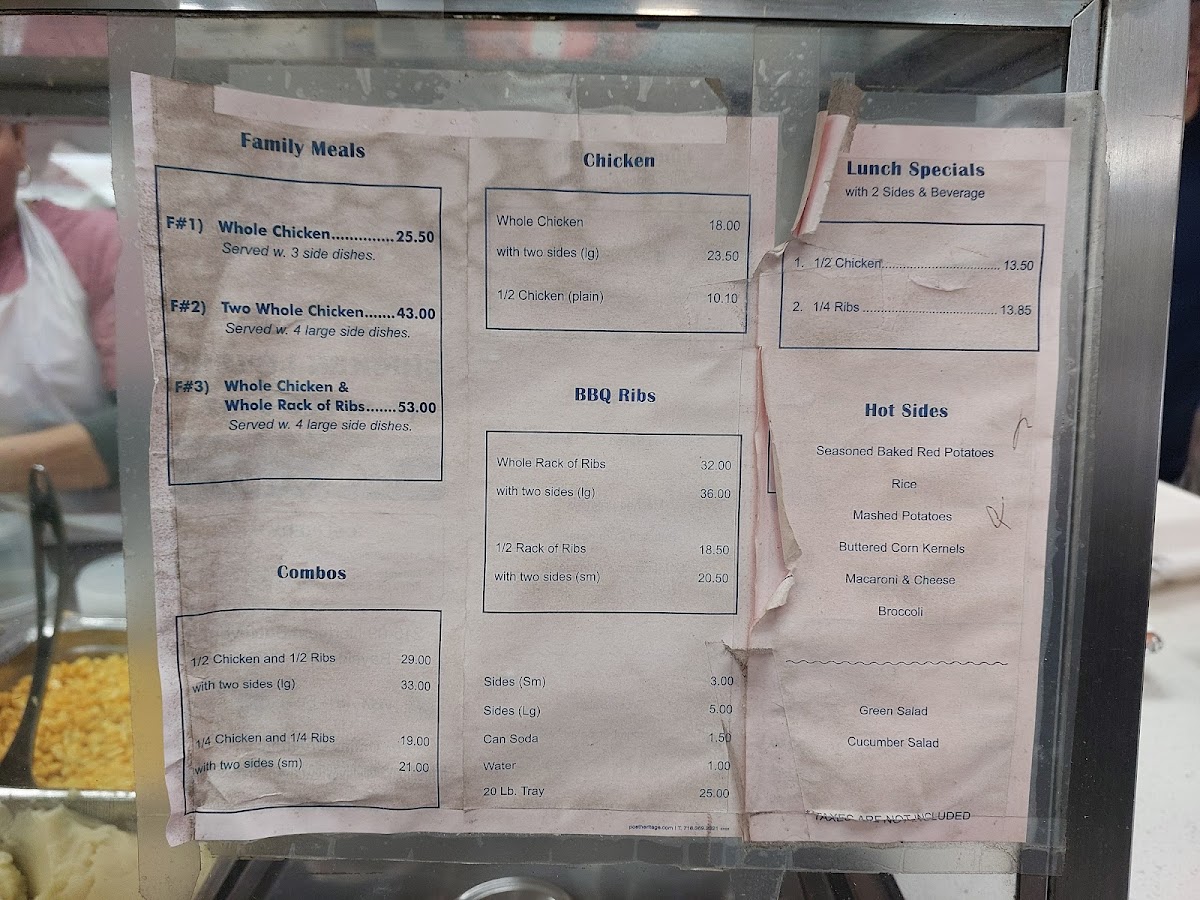 Family Meals
F#1) Whole Chicken..............25.50
Served w. 3 side dishes.
F#2) Two Whole Chicken.......43.00
Served w. 4 large side dishes.
F#3) Whole Chicken &
Whole Rack of Ribs.......53.00
Served w. 4 large side dishes.
Combos
1/2 Chicken and 1/2 Ribs 29.00
with two sides (lg) 33.00
1/4 Chicken and 1/4 Ribs 19.00
with two sides (sm) 21.00
Chicken
Whole Chicken 18.00
with two sides (lg) 23.50
1/2 Chicken (plain) 10.10
BBQ Ribs
Whole Rack of Ribs 32.00
with two sides (lg) 36.00
1/2 Rack of Ribs 18.50
with two sides (sm) 20.50
Sides (Sm) 3.00
Sides (Lg) 5.00
Can Soda 1.50
Water 1.00
20 Lb. Tray 25.00
Lunch Specials
with 2 Sides & Beverage
1. 1/2 Chicken................................ 13.50
2. 1/4 Ribs .......................................... 13.85
Hot Sides
Seasoned Baked Red Potatoes
Rice
Mashed Potatoes
Buttered Corn Kernels
Macaroni & Cheese
Broccoli
Green Salad
Cucumber Salad
TAXES ARE NOT INCLUDED